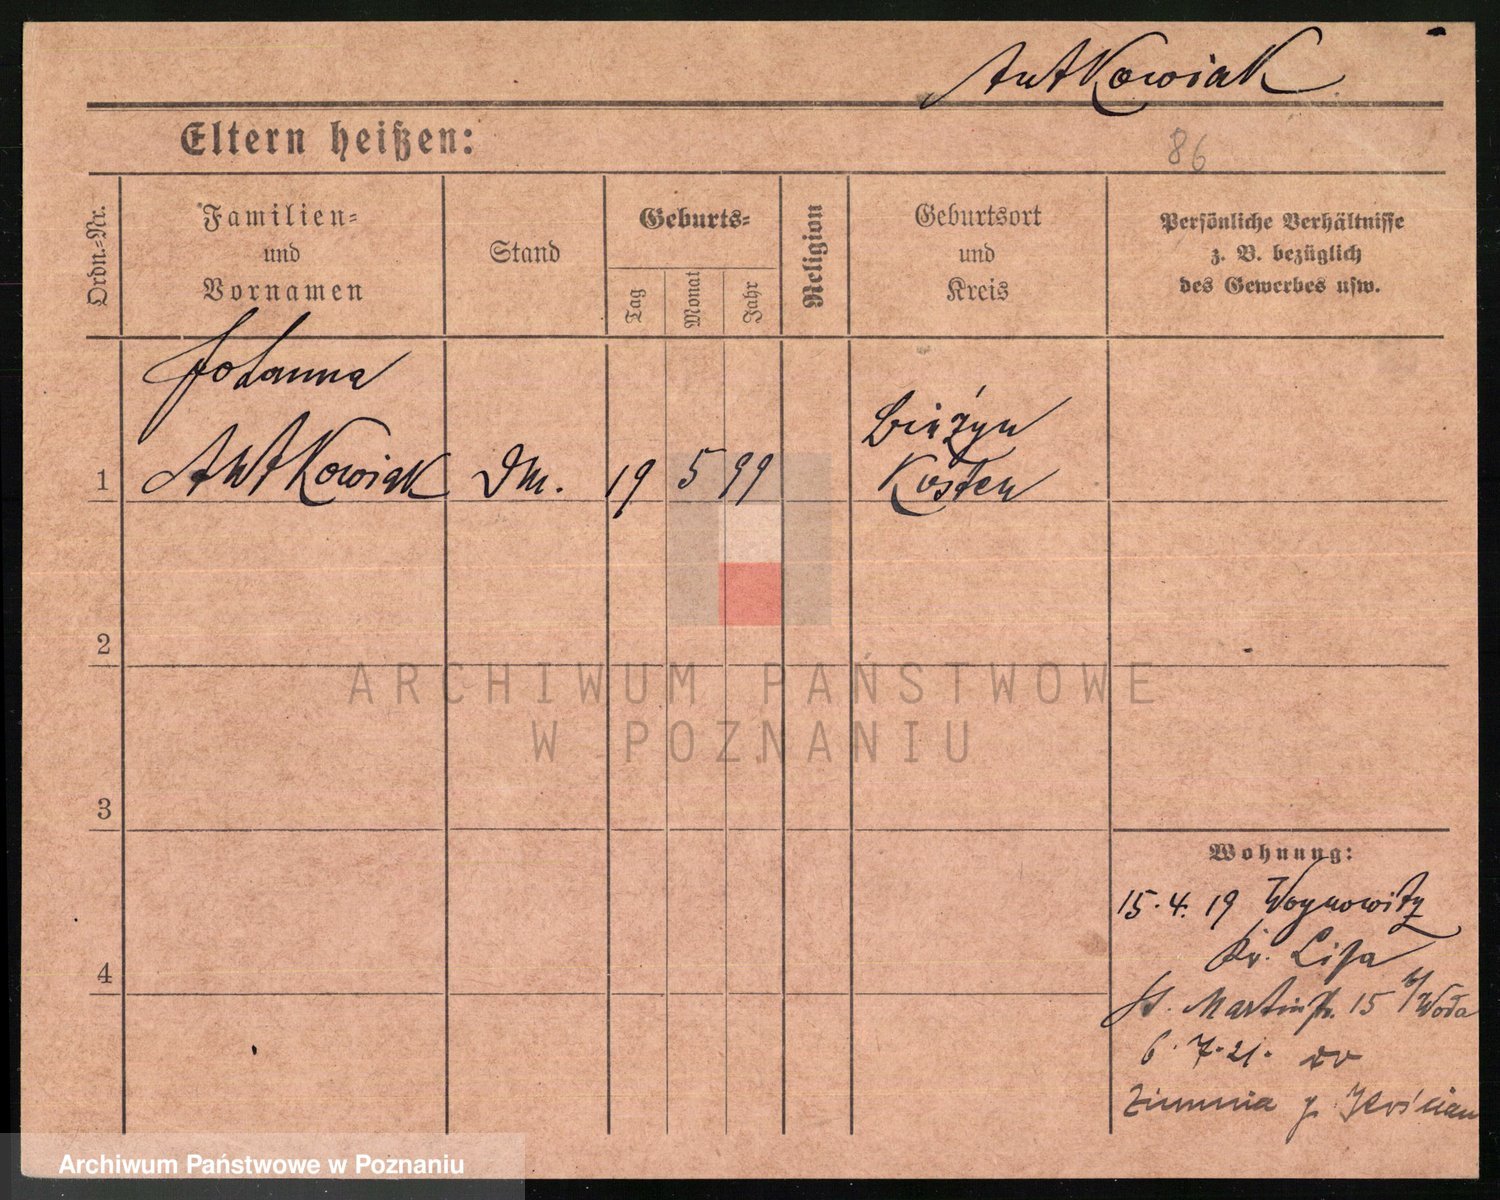 Antkowiak
Eltern heißen:
86
Ordn.-Nr.
Familien-
und
Vornamen
Stand
Geburts-
Tag
Monat
Jahr
Religion
Geburtsort
und
Kreis
Persönliche Verhältnisse
z. B. bezüglich
des Gewerbes usw.
Johanna
Bieżyn
1 Antkowiak Dm. 19 5 99 Kosten
2
ARCHIWUM PAŃSTWOWE
W POZNANIU
3
Wohnung:
15.4.19 Woynowitz
Kr. Lissa
4
St. Martinstr. 15 b/
6.7.21.
Zimnia p.
Archiwum Państwowe w Poznaniu